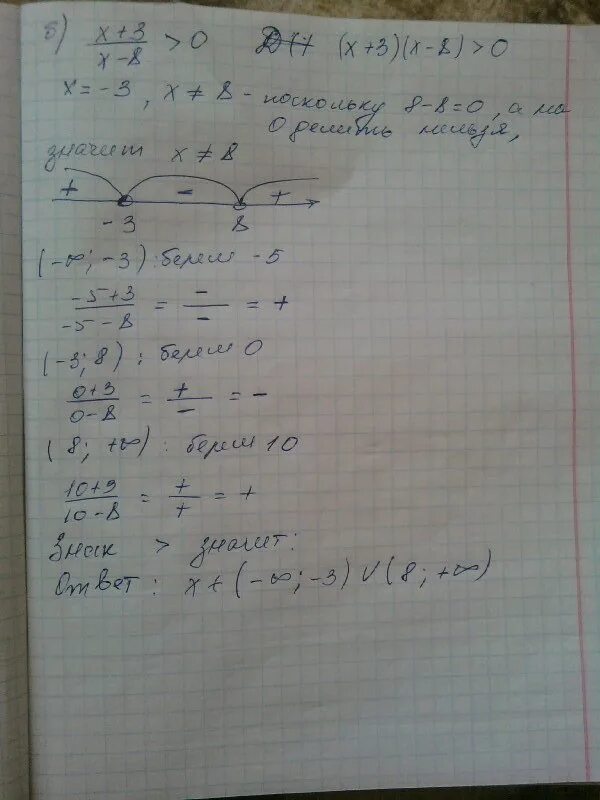 б) x+3/x-8 > 0 (x+3)(x-8)>0
x = -3, x ≠ 8 - поскольку 8-8=0, а на
0 делить нельзя,
значит x ≠ 8
+ - +
-3 8
(-∞; -3) : берем -5
-5+3/-5-8 = -/- = +
(-3; 8) : берем 0
0+3/0-8 = +/- = -
(8; +∞) : берем 10
10+9/10-8 = +/+ = +
Знак > значит:
Ответ: x ∈ (-∞; -3) ∪ (8; +∞)